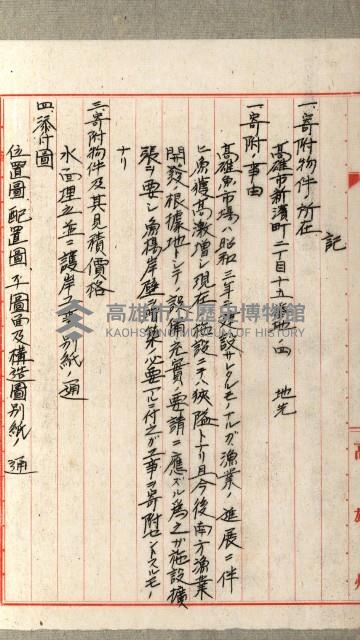 記
一、寄附物件ノ所在
高雄市新濱町二丁目十八番地ノ四 地先
一、寄附ノ事由
高雄魚市場ハ昭和三年ニ建設サレタルモノナルガ漁業ノ進展ニ伴
ヒ漁獲高激増シ現在ノ施設ニテハ狹隘トナリ且今後南方漁業
開發ノ根據地トシテノ設備充實ノ要請ニ應ズル為之ガ施設擴
張ヲ要シ魚揚岸壁ノ新築必要アルニ付之ガ工事ヲ寄附セントスルモノ
ナリ
三、寄附物件及其見積價格
水面埋立並ニ護岸工事別紙ノ通
四、添付圖
位置圖、配置圖、平圖面及構造圖別紙ノ通
高雄市立歷史博物館
KAOHSIUNG MUSEUM OF HISTORY
高雄州